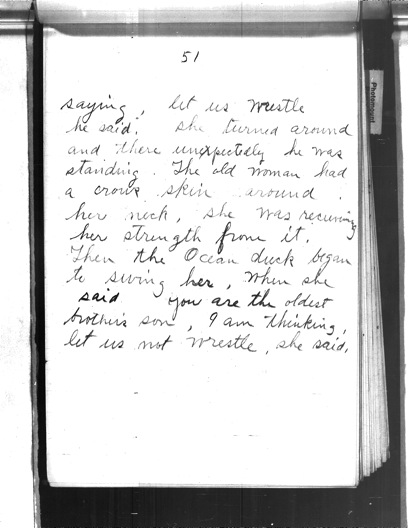 51
saying, let us wrestle
he said. She turned around
and there unexpectedly he was
standing. The old woman had
a crows skin around
her neck, she was recieving
her strength from it.
Then the Ocean duck began
to swing her, When she
said you are the oldest
brother's son, I am thinking,
let us not wrestle, she said.